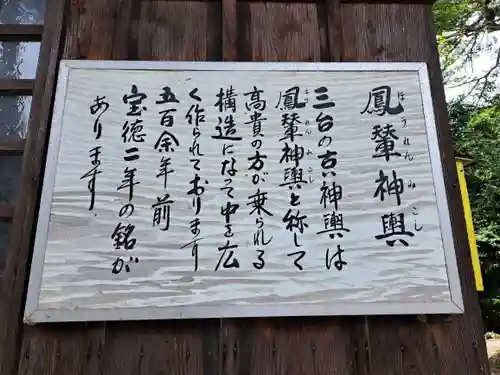 鳳輦神輿
ほうれんみこし
三台の古い神輿は
鳳輦神輿と称して
ほうれんみこし
高貴の方が乗られる
構造になって中も広
く作られております
五百余年前
宝徳二年の銘が
あります。